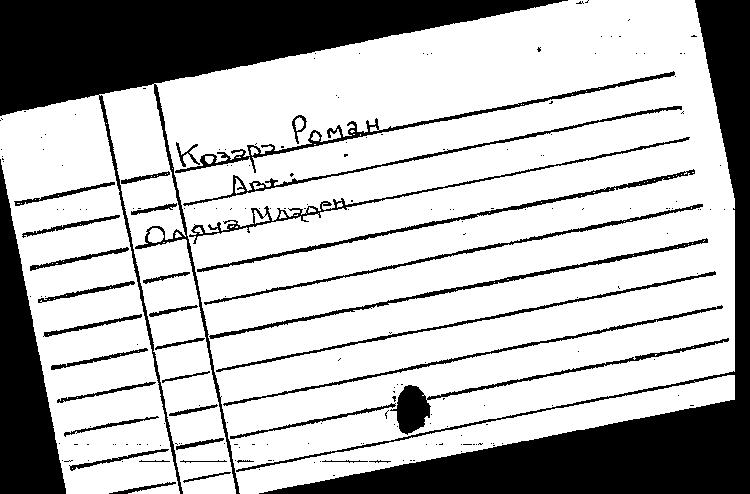 Козара. Роман.
Авт.:
Оляча, Младен.